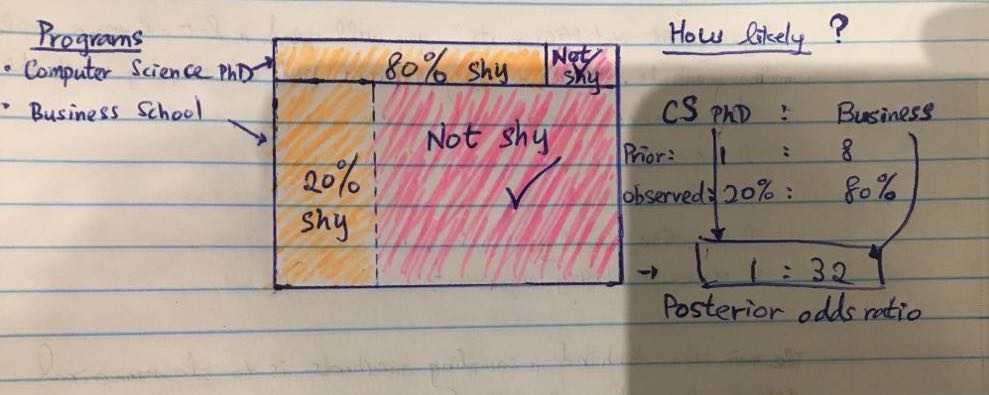 Programs
• Computer Science PhD
• Business School
80% shy
Not shy
20% shy
Not shy
How likely ?
CS PhD : Business
Prior: 1 : 8
observed: 20% : 80%
→ 1 : 32
Posterior odds ratio